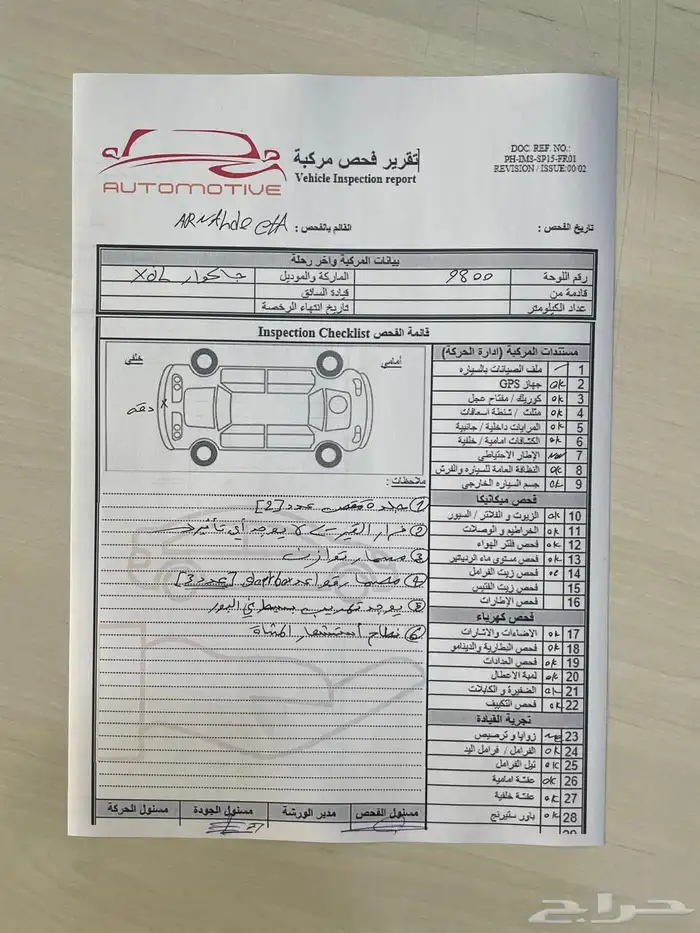 AUTOMOTIVE
تقرير فحص مركبة
Vehicle Inspection report
DOC. REF. NO.:
PH-IMS-SP15-FR01
REVISION / ISSUE:00/02
تاريخ الفحص :
القائم بالفحص :
بيانات المركبة واخر رحلة
رقم اللوحة 9800 الماركة والموديل جاكوار XJL
قادمة من قيادة السائق
عداد الكيلومتر تاريخ انتهاء الرخصة
قائمة الفحص Inspection Checklist
أمامي
خلفي
دقه X
ملاحظات :
① جلدة مقص عدد [2]
② غرار القير لا يوجد أي تأثير
③ مسمار توازن
④ عدد 3
⑤ يوجد تهريب بسيط في البور
⑥
مستندات المركبة (ادارة الحركة)
1 ملف الصيانات بالسياره
2 OK جهاز GPS
3 OK كوريك / مفتاح عجل
4 OK مثلث / شنطة اسعافات
5 OK المرايات داخلية / جانبية
6 OK الكشافات امامية / خلفية
7 الإطار الاحتياطي
8 OK النظافة العامة للسياره والفرش
9 OK جسم السياره الخارجي
فحص ميكانيكا
10 OK الزيوت و الفلاتر / السيور
11 OK الخراطيم و الوصلات
12 OK فحص فلتر الهواء
13 OK فحص مستوى ماء الرديتر
14 OK فحص زيت الفرامل
15 فحص زيت القتيس
16 فحص الإطارات
فحص كهرباء
17 OK الاضاءات والاشارات
18 OK فحص البطارية والدينامو
19 OK فحص العدادات
20 OK لمبة الاعطال
21 OK الضفيرة و الكابلات
22 OK فحص التكييف
تجربة القيادة
23 زوايا و ترصيص
24 OK الفرامل / فرامل اليد
25 OK تيل الفرامل
26 OK عفشة امامية
27 OK عفشة خلفية
28 OK باور ستيرنج
29
مسئول الفحص
مدير الورشة
مسئول الجودة
مسئول الحركة
حراج